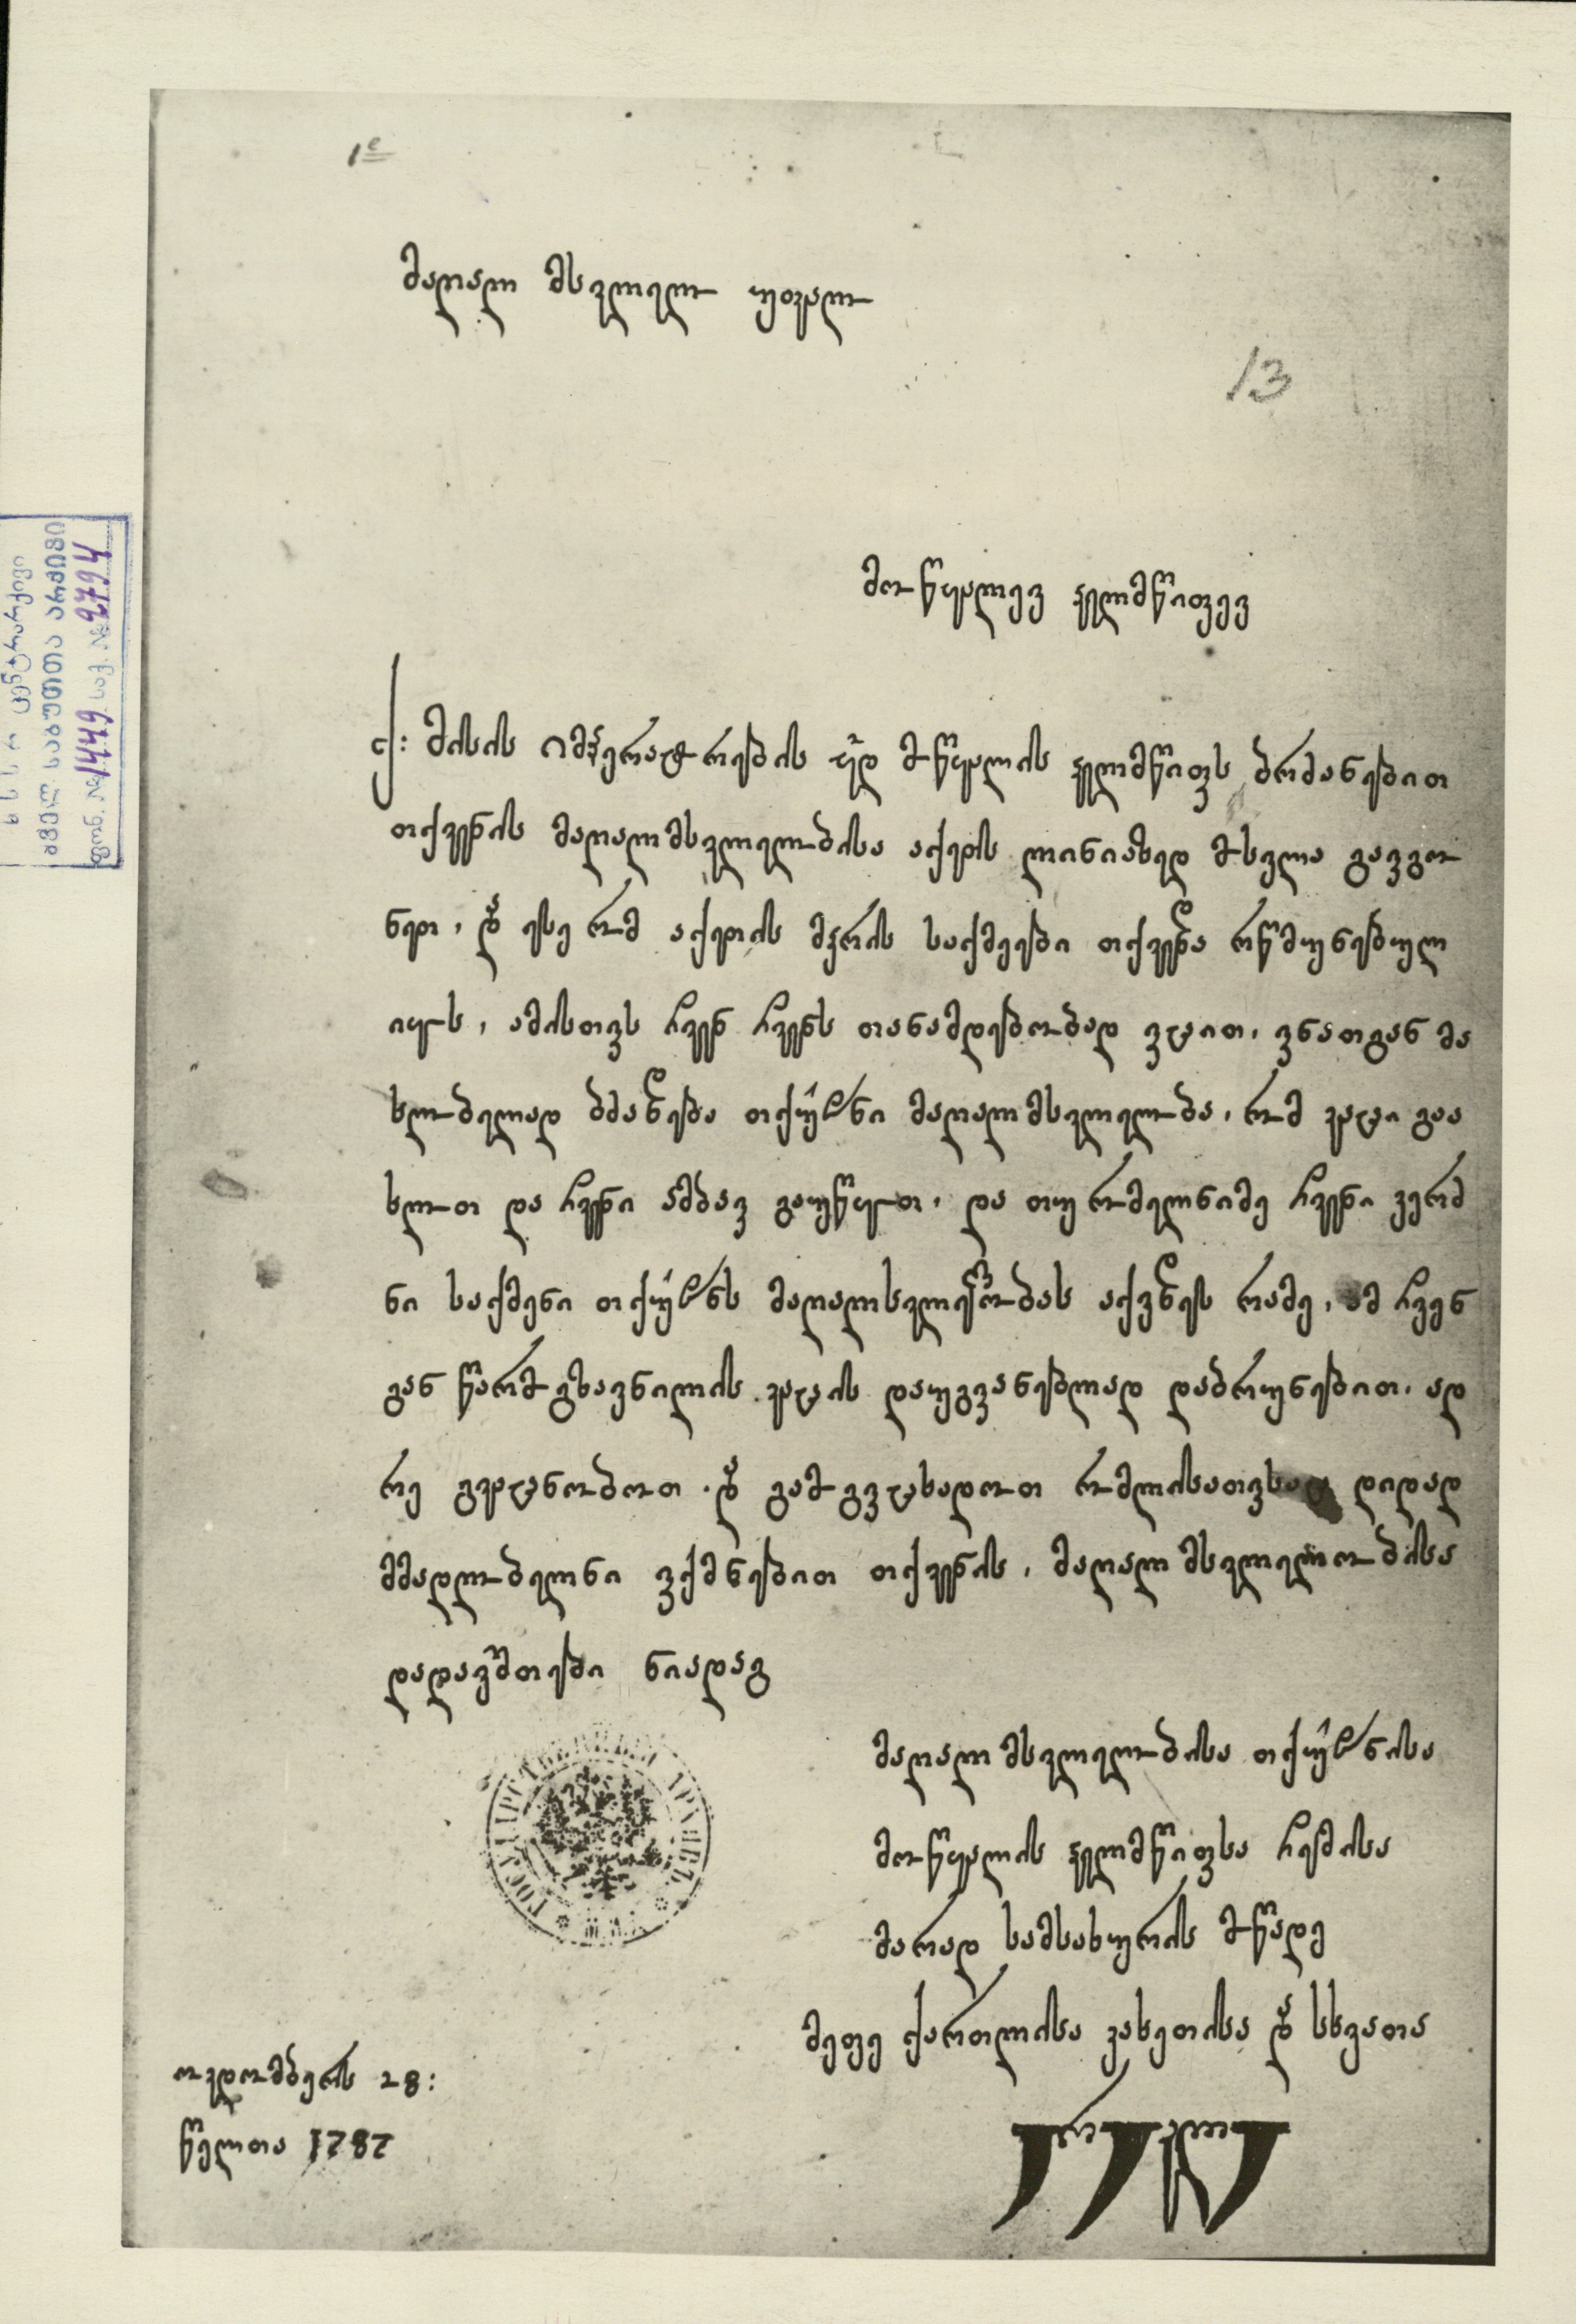 1ა
მაღალ მსვლელო უფალო
13
მოწყალევ ჴელმწიფევ
ქ: მისის იმპერატორების ყ~დ მოწყალის ჴელმწიფს ბრძანებით
თქვენის მაღალმსვლელობისა აქეთს ღინიახედ მოსვლა გავგო
ნეთ, და ესე რომ აქეთის მჴრის საქმეები თქვენდა რწმუნებულ
იყოს, ამისთვს ჩვენ ჩვენს თანამდებობად ვჰპოვეთ, ვინათგან მა
ხლობელად ბძანდება თქ~ნი მაღალმსვლელობა, რომ კაცი გაა
ხლოთ და ჩვენი ამბავ გაუწყოთ, და თუ რომელნიმე ჩვენი კერძ
ნი საქმენი თქ~ნს მაღალსვლელობას აქვნდეს რამე, ამ ჩვენ
გან წარმოგზავნილის კაცის დაუგვანებლად დაბრუნებით, ად
რე გვაცნობოთ. და გამოგვიცხადოთ რომლისათვსაც დიდად
მმადლობელნი ვიქმნებით თქვენის, მაღალ მსვლელობისა
დადავშთებით ნიადაგ
მაღალ მსვლელობისა თქ~ნისა
მოწყალის ჴელმწიფსა ჩემისა
მარად სამსახურის მოწადე
მეფე ქართლისა კახეთისა და სხვათა
ირაკლი
ოკდომბერს 28:
წელთა 1782
ფონ. № 1449 საქ. № 2794